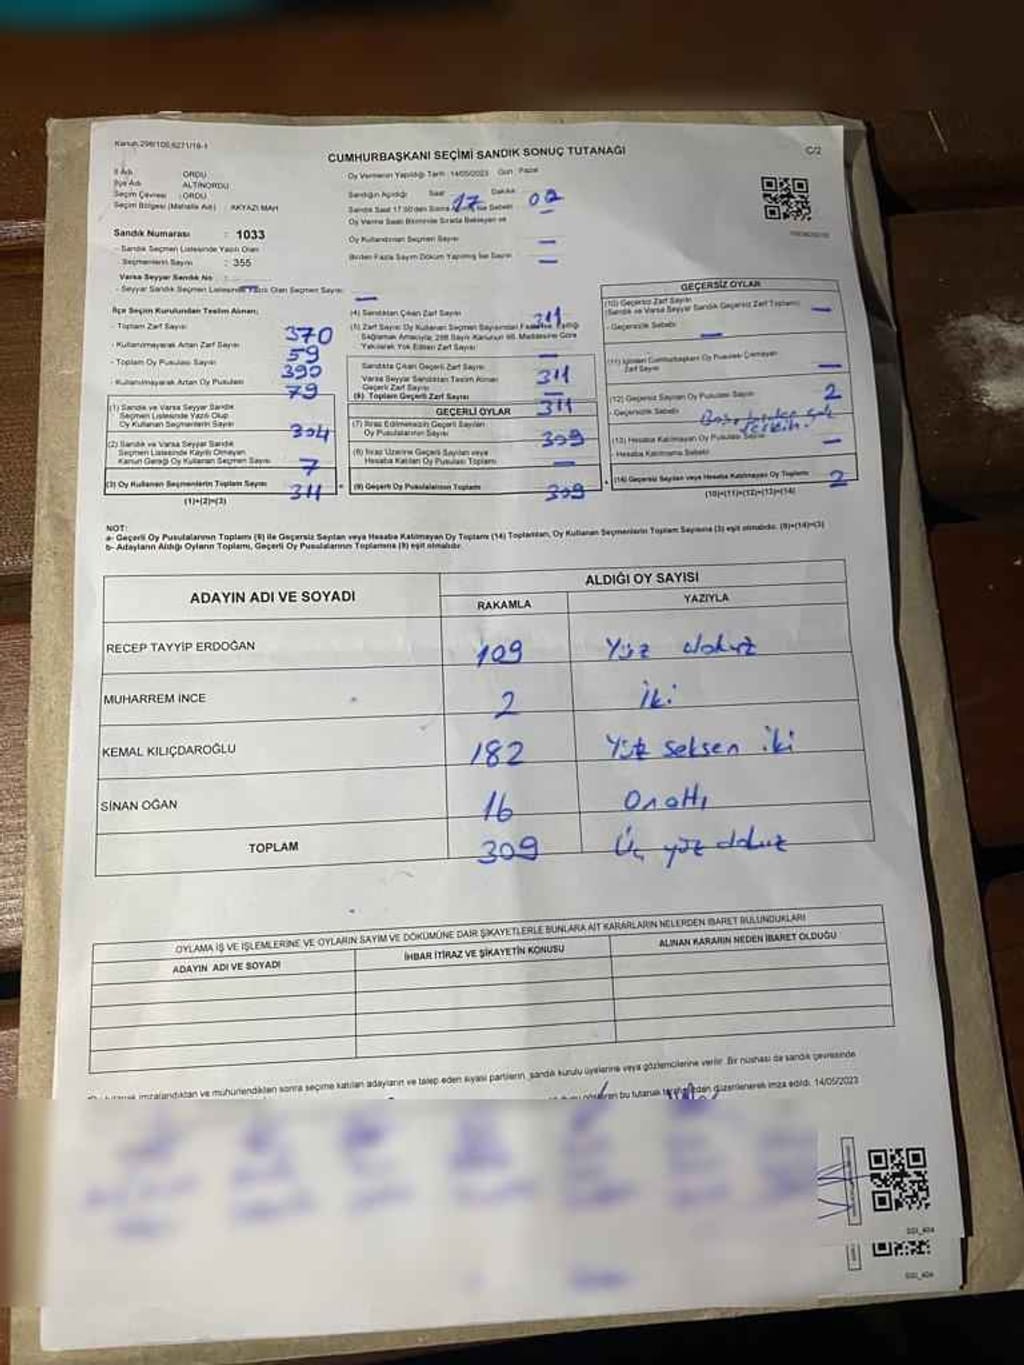 Kanun 298/105,6271/18-1
CUMHURBAŞKANI SEÇİMİ SANDIK SONUÇ TUTANAĞI
C/2
İl Adı ORDU
İlçe Adı ALTINORDU
Seçim Çevresi : ORDU
Seçim Bölgesi (Mahalle Adı) : AKYAZI MAH
Sandık Numarası : 1033
- Sandık Seçmen Listesinde Yazılı Olan
Seçmenlerin Sayısı : 355
Varsa Seyyar Sandık No :
- Seyyar Sandık Seçmen Listesinde Yazılı Olan Seçmen Sayısı: —
Oy Vermenin Yapıldığı Tarih : 14/05/2023 Gün : Pazar
Sandığın Açıldığı Saat 17 Dakika 02
Sandık Saat 17:00'den Sonra Sebebi —
Oy Verme Saati Bitiminde Sırada Bekleyen ve
Oy Kullandırılan Seçmen Sayısı —
Birden Fazla Sayım Döküm Yapılmış İse Sayısı —
İlçe Seçim Kurulundan Teslim Alınan;
- Toplam Zarf Sayısı 370
- Kullanılmayarak Artan Zarf Sayısı 59
- Toplam Oy Pusulası Sayısı 390
- Kullanılmayarak Artan Oy Pusulası 79
(1) Sandık ve Varsa Seyyar Sandık
Seçmen Listesinde Yazılı Olup
Oy Kullanan Seçmenlerin Sayısı 304
(2) Sandık ve Varsa Seyyar Sandık
Seçmen Listesinde Kayıtlı Olmayan
Kanun Gereği Oy Kullanan Seçmen Sayısı 7
(3) Oy Kullanan Seçmenlerin Toplam Sayısı 311
(1)+(2)=(3)
(4) Sandıktan Çıkan Zarf Sayısı 311
(5) Zarf Sayısı Oy Kullanan Seçmen Sayısından Fazla
Sağlamak Amacıyla; 298 Sayılı Kanunun 98. Maddesine Göre
Yakılarak Yok Edilen Zarf Sayısı —
Sandıkta Çıkan Geçerli Zarf Sayısı 311
Varsa Seyyar Sandıktan Teslim Alınan
Geçerli Zarf Sayısı —
(6) Toplam Geçerli Zarf Sayısı 311
GEÇERLİ OYLAR
(7) İtiraz Edilmeksizin Geçerli Sayılan
Oy Pusulalarının Sayısı 309
(8) İtiraz Üzerine Geçerli Sayılan veya
Hesaba Katılan Oy Pusulası Toplamı —
(9) Geçerli Oy Pusulalarının Toplamı 309
GEÇERSİZ OYLAR
(10) Geçersiz Zarf Sayısı
(Sandık ve Varsa Seyyar Sandık Geçersiz Zarf Toplamı) —
- Geçersizlik Sebebi —
(11) İçinden Cumhurbaşkanı Oy Pusulası Çıkmayan
Zarf Sayısı —
(12) Geçersiz Sayılan Oy Pusulası Sayısı 2
- Geçersizlik Sebebi
(13) Hesaba Katılmayan Oy Pusulası Sayısı —
- Hesaba Katılmama Sebebi
(14) Geçersiz Sayılan veya Hesaba Katılmayan Oy Toplamı 2
(10)+(11)+(12)+(13)=(14)
NOT:
a- Geçerli Oy Pusulalarının Toplamı (9) ile Geçersiz Sayılan veya Hesaba Katılmayan Oy Toplamı (14) Toplamları, Oy Kullanan Seçmenlerin Toplam Sayısına (3) eşit olmalıdır. (9)+(14)=(3)
b- Adayların Aldığı Oyların Toplamı, Geçerli Oy Pusulalarının Toplamına (9) eşit olmalıdır.
ADAYIN ADI VE SOYADI
ALDIĞI OY SAYISI
RAKAMLA YAZIYLA
RECEP TAYYİP ERDOĞAN 109 Yüz dokuz
MUHARREM İNCE 2 İki
KEMAL KILIÇDAROĞLU 182 Yüz seksen iki
SİNAN OĞAN 16 Onaltı
TOPLAM 309 Üç yüz dokuz
OYLAMA İŞ VE İŞLEMLERİNE VE OYLARIN SAYIM VE DÖKÜMÜNE DAİR ŞİKAYETLERLE BUNLARA AİT KARARLARIN NELERDEN İBARET BULUNDUKLARI
ADAYIN ADI VE SOYADI
İHBAR İTİRAZ VE ŞİKAYETİN KONUSU
ALINAN KARARIN NEDEN İBARET OLDUĞU
imzalandıktan ve mühürlendikten sonra seçime katılan adayların ve talep eden siyasi partilerin, sandık kurulu üyelerine veya gözlemcilerine verilir. Bir nüshası da sandık çevresinde
bu tutanak düzenlenerek imza edildi. 14/05/2023
SSI_404
SSI_404